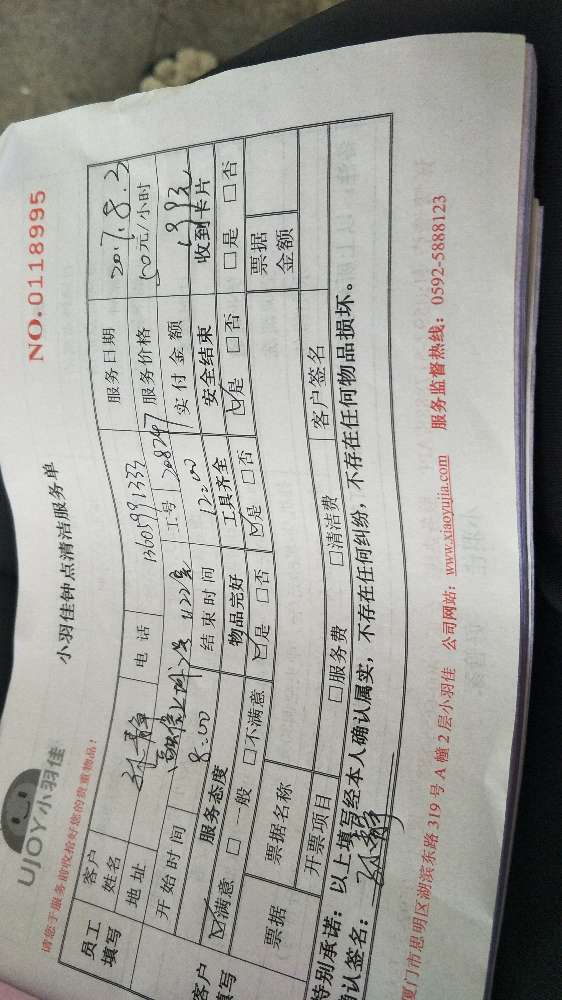 UJOY小羽佳
小羽佳钟点清洁服务单
NO.0118995
请您于服务前收拾好您的贵重物品！
员工填写
客户姓名 电话 13605991332 服务日期 2017.8.3
地址 工号 208247 服务价格 50元/小时
开始时间 8:00 结束时间 12:00 实付金额
服务态度 物品完好 工具齐全 安全结束 收到卡片
客户填写
☑满意 □一般 □不满意 ☑是 □否 ☑是 □否 ☑是 □否 □是 □否
票据 票据名称 票据金额
开票项目 □服务费 □清洁费 客户签名
特别承诺：以上填写经本人确认属实，不存在任何纠纷，不存在任何物品损坏。
确认签名：
厦门市思明区湖滨东路 319 号 A 幢 2 层小羽佳 公司网站：www.xiaoyujia.com 服务监督热线：0592-5888123